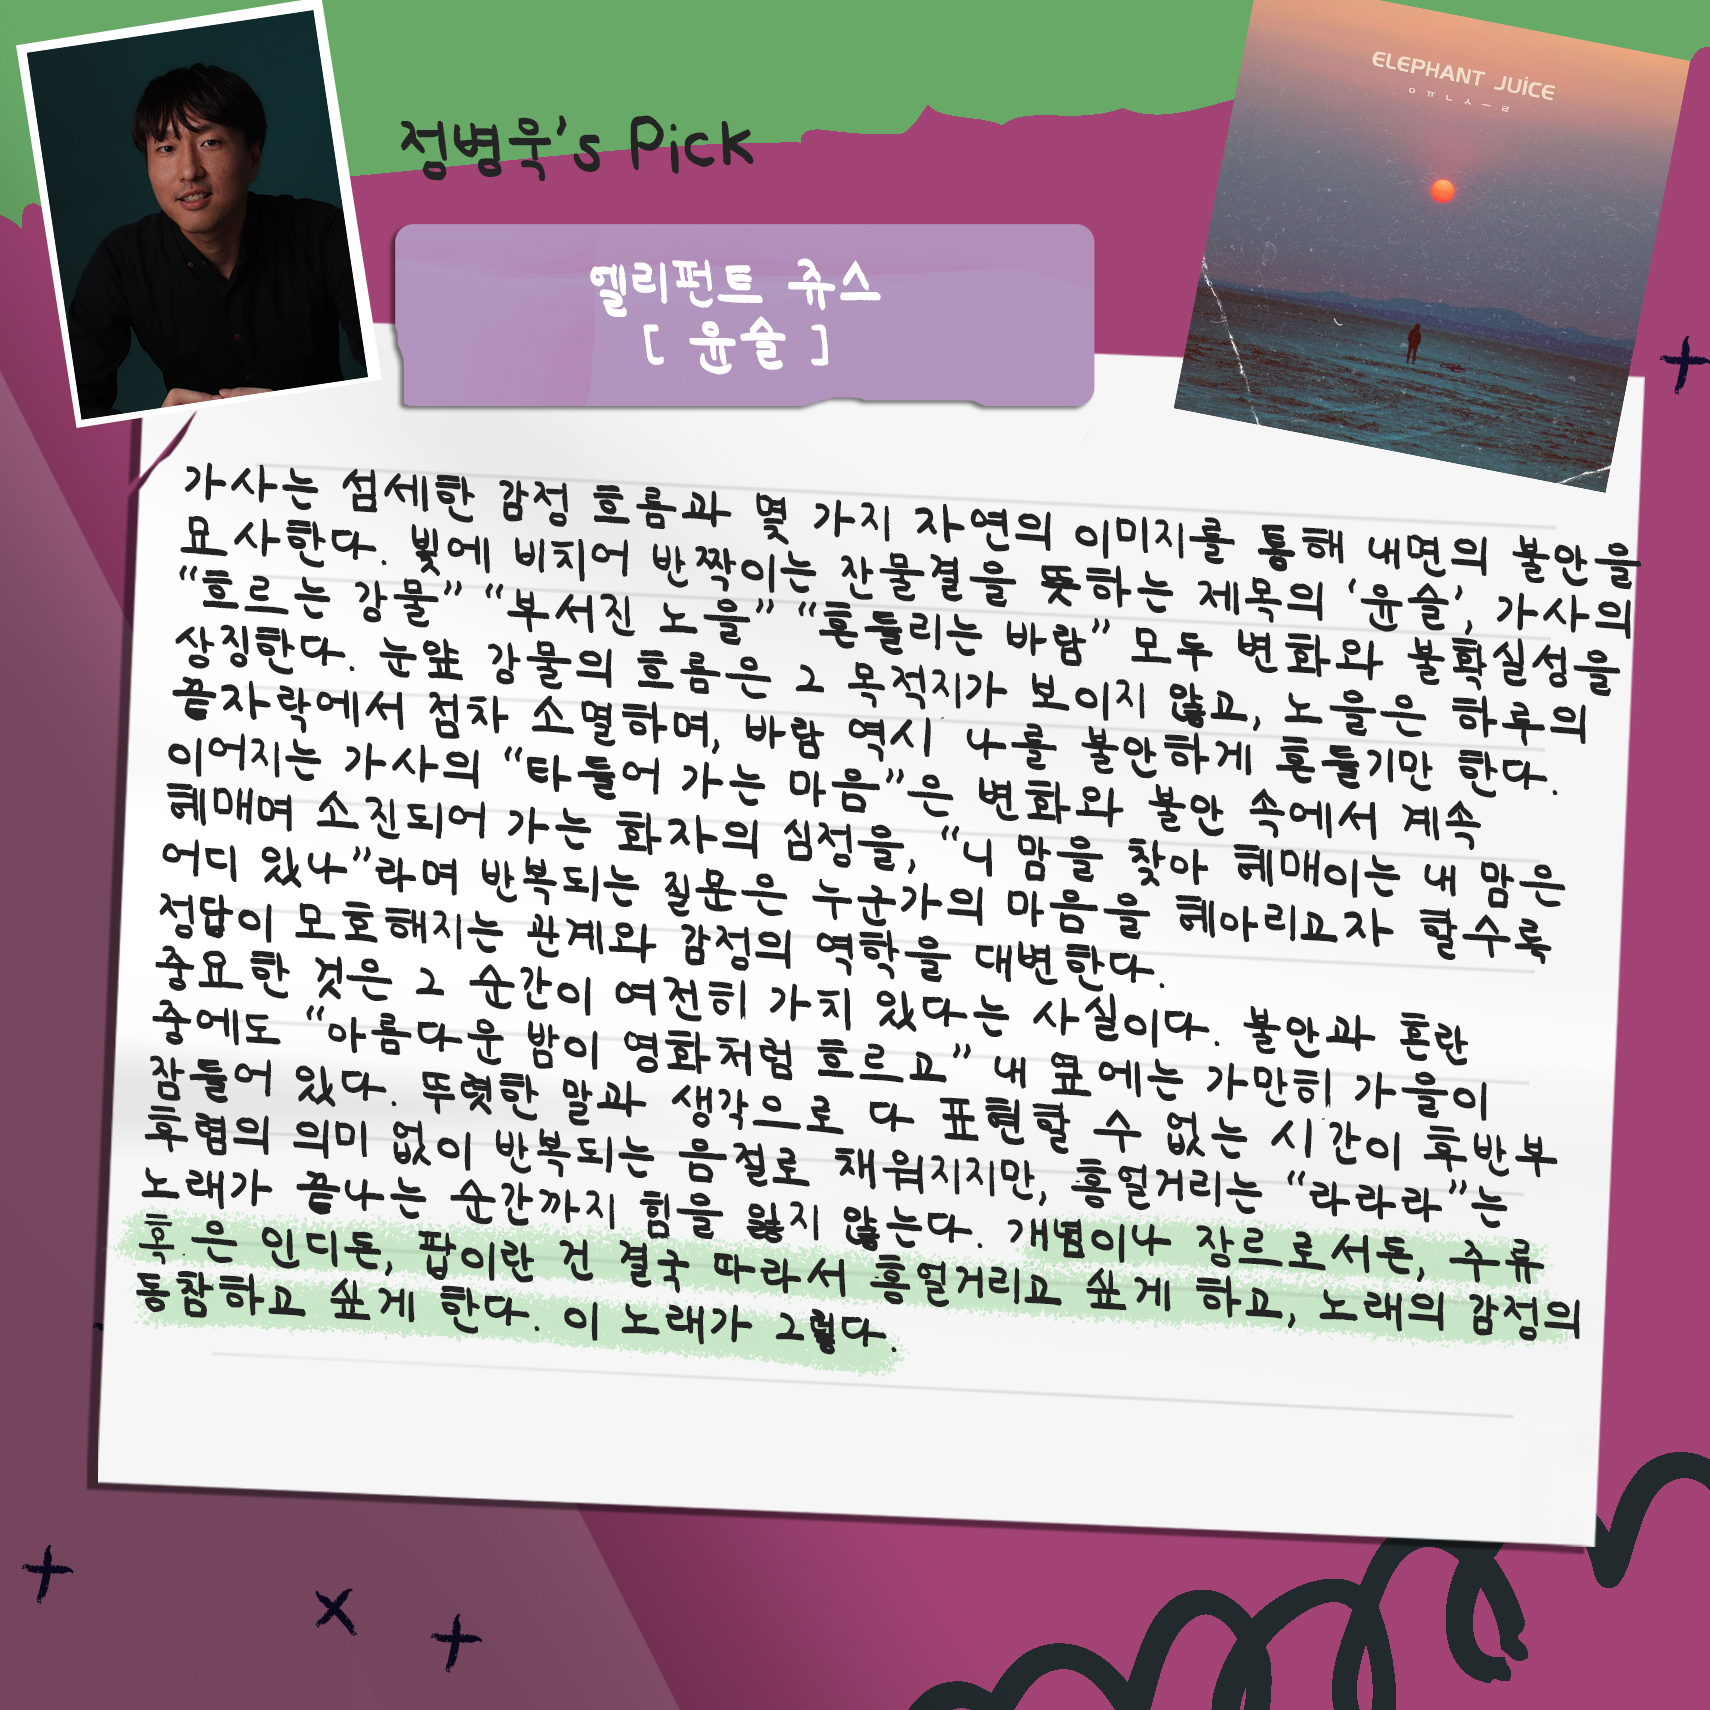 정병욱's Pick
엘리펀트 쥬스
[ 윤슬 ]
ELEPHANT JUiCE
ㅇㅠㄴㅅㅡㄹ
가사는 섬세한 감정 흐름과 몇 가지 자연의 이미지를 통해 내면의 불안을
묘사한다. 빛에 비치어 반짝이는 잔물결을 뜻하는 제목의 '윤슬', 가사의
"흐르는 강물" "부서진 노을" "흔들리는 바람" 모두 변화와 불확실성을
상징한다. 눈앞 강물의 흐름은 그 목적지가 보이지 않고, 노을은 하루의
끝자락에서 점차 소멸하며, 바람 역시 나를 불안하게 흔들기만 한다.
이어지는 가사의 "타들어 가는 마음"은 변화와 불안 속에서 계속
헤매며 소진되어 가는 화자의 심정을, "니 맘을 찾아 헤매이는 내 맘은
어디 있나"라며 반복되는 질문은 누군가의 마음을 헤아리고자 할수록
정답이 모호해지는 관계와 감정의 역학을 대변한다.
중요한 것은 그 순간이 여전히 가치 있다는 사실이다. 불안과 혼란
중에도 "아름다운 밤이 영화처럼 흐르고" 내 곁에는 가만히 가을이
잠들어 있다. 뚜렷한 말과 생각으로 다 표현할 수 없는 시간이 후반부
후렴의 의미 없이 반복되는 음절로 채워지지만, 흥얼거리는 "라라라"는
노래가 끝나는 순간까지 힘을 잃지 않는다. 개념이나 장르로서든, 주류
혹은 인디든, 팝이란 건 결국 따라서 흥얼거리고 싶게 하고, 노래의 감정의
동참하고 싶게 한다. 이 노래가 그렇다.